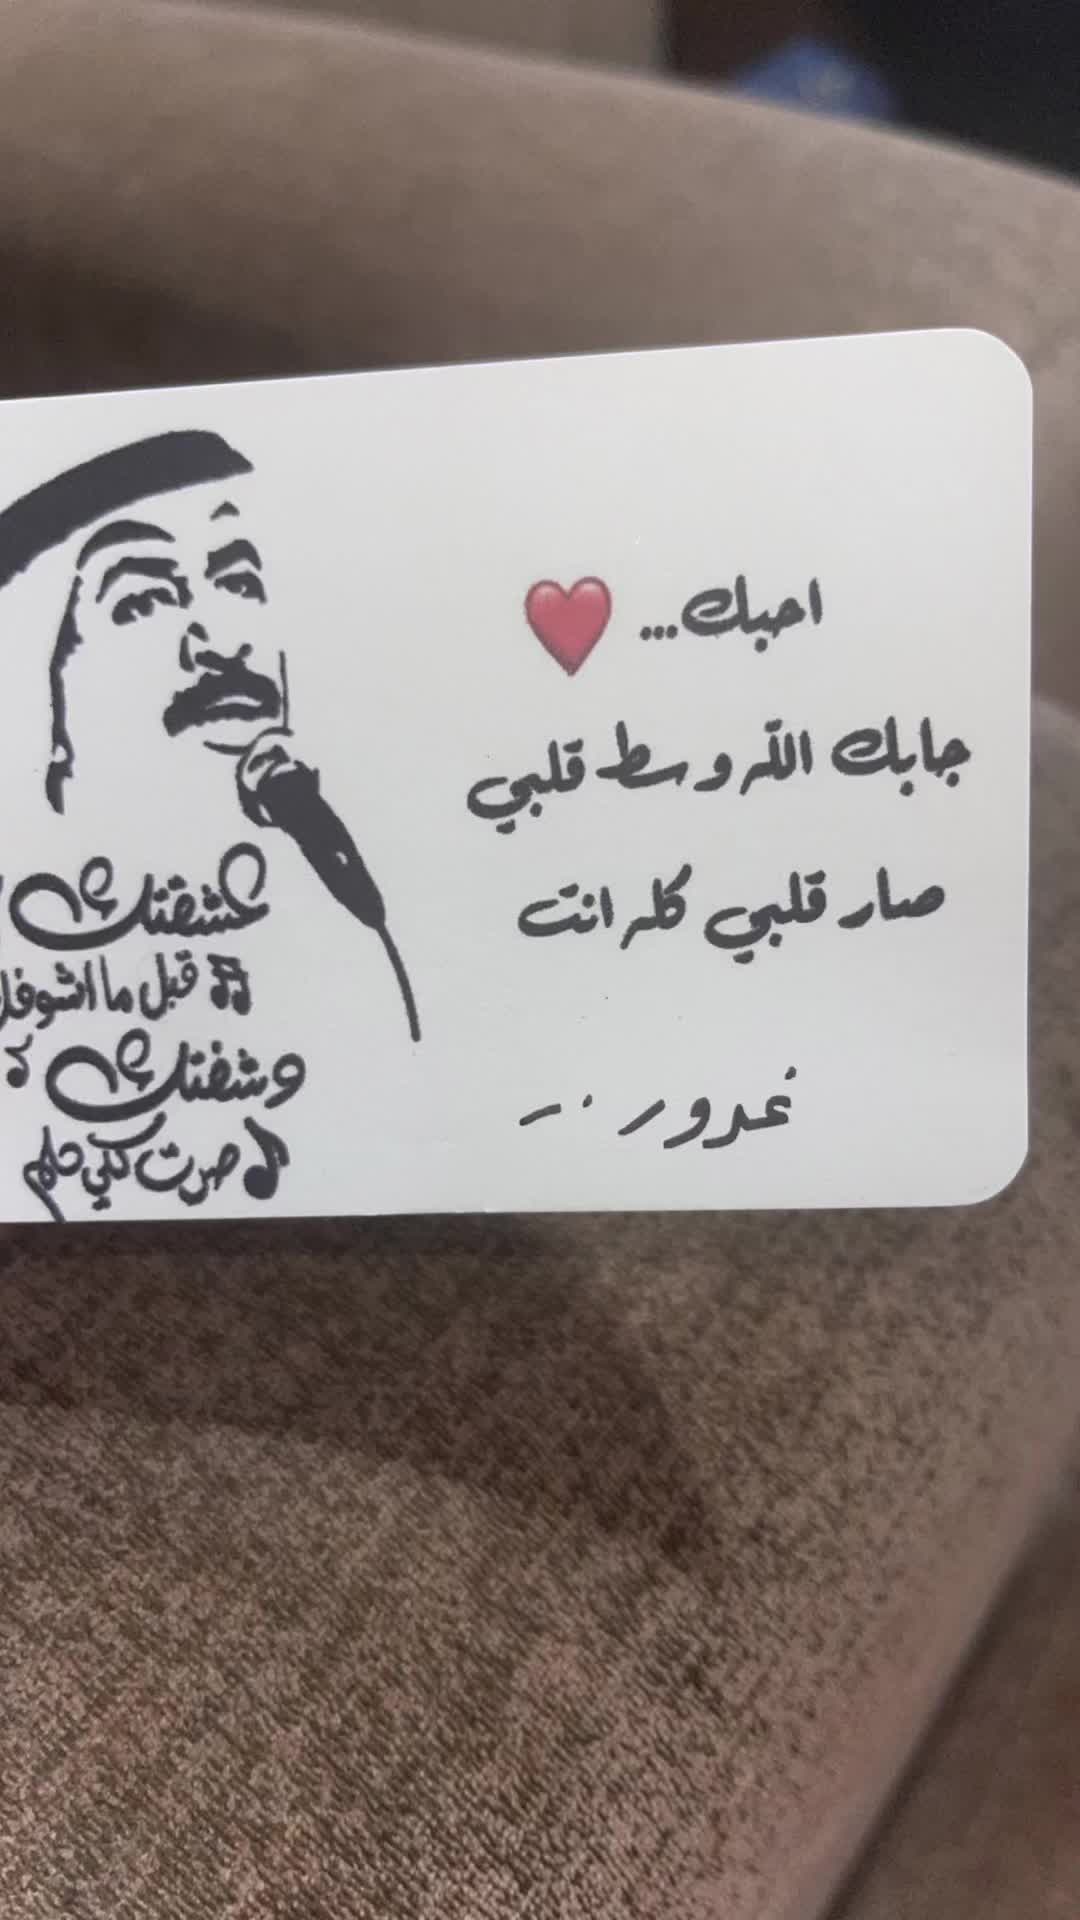 احبك... ❤️
جابك الله وسط قلبي
صار قلبي كله انت
غدور ..
عشقتك
قبل ما اشوفك
وشفتك
صرت كلي حلم